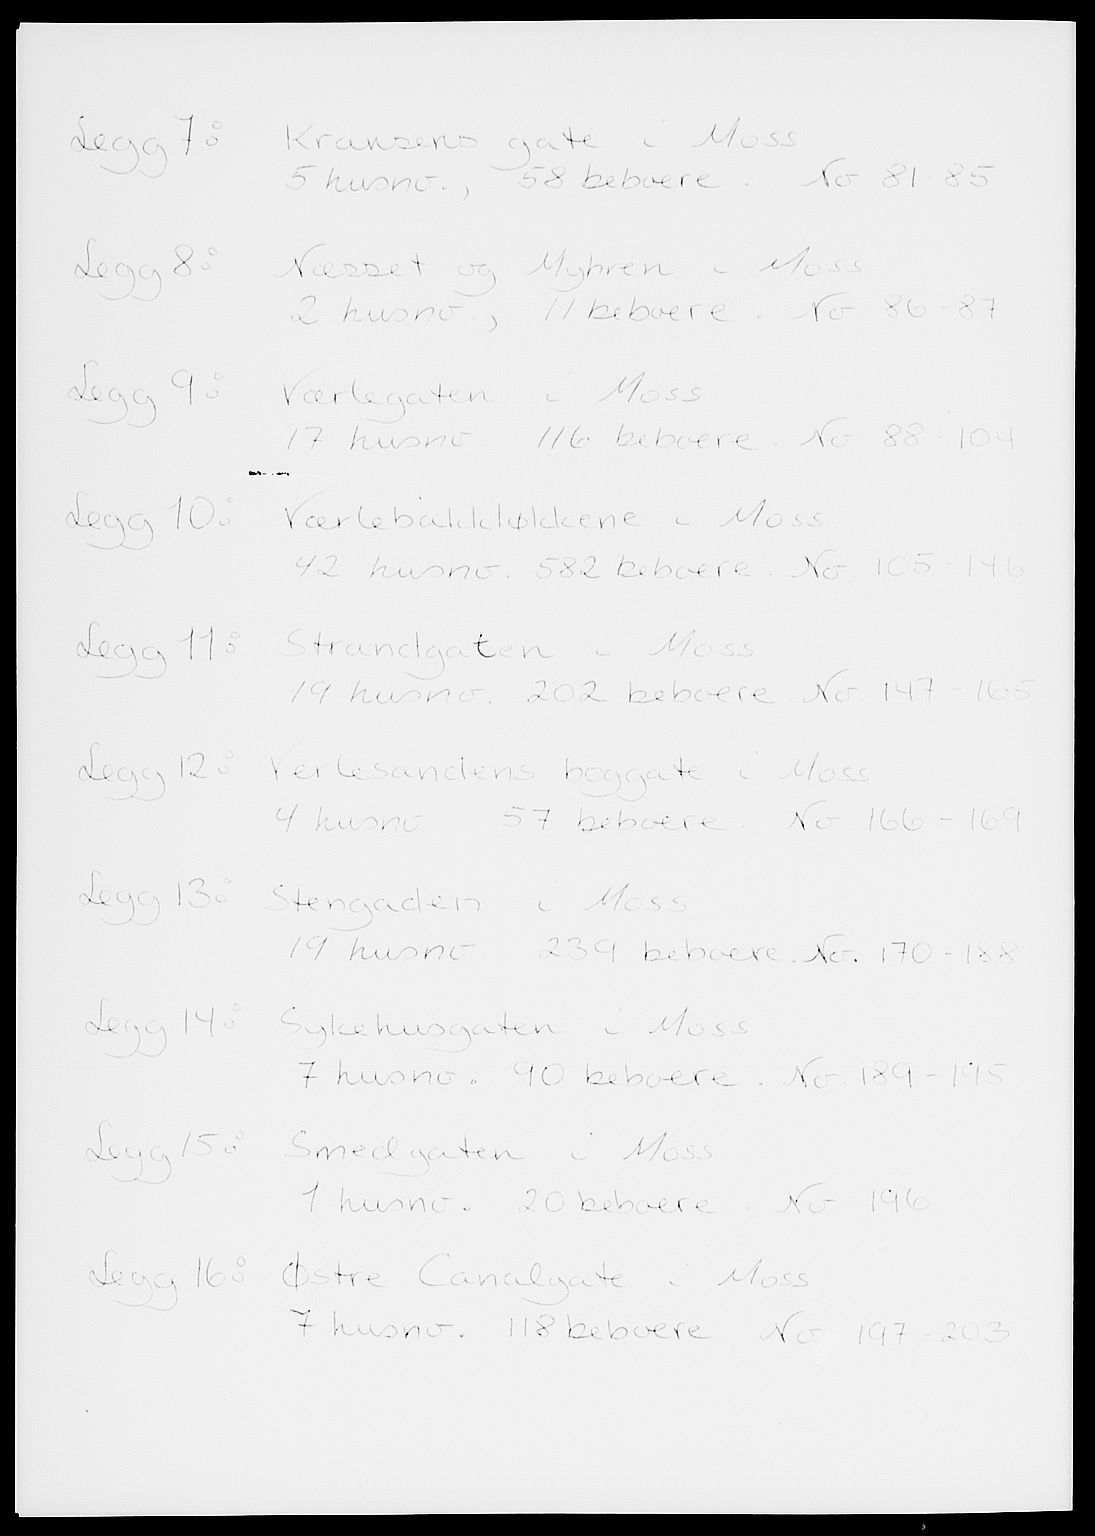 Legg 7: Kransens gate i Moss
5 husno., 58 beboere. No 81-85
Legg 8: Næsset og Myhren i Moss
2 husno., 11 beboere. No. 86-87
Legg 9: Værlegaten i Moss
17 husno. 116 beboere. No 88-104
Legg 10: Værlebakkløkkene i Moss
42 husno. 582 beboere. No. 105-146
Legg 11: Strandgaten i Moss
19 husno. 202 beboere No. 147-165
Legg 12: Verlesandens baggate i Moss
4 husno. 57 beboere. No. 166-169
Legg 13: Stengaden i Moss
19 husno. 239 beboere. No. 170-188
Legg 14: Sykehusgaten i Moss
7 husno. 90 beboere. No. 189-195
Legg 15: Smedgaten i Moss
1 husno. 20 beboere. No 196
Legg 16: Østre Canalgate i Moss
7 husno. 118 beboere No 197-203